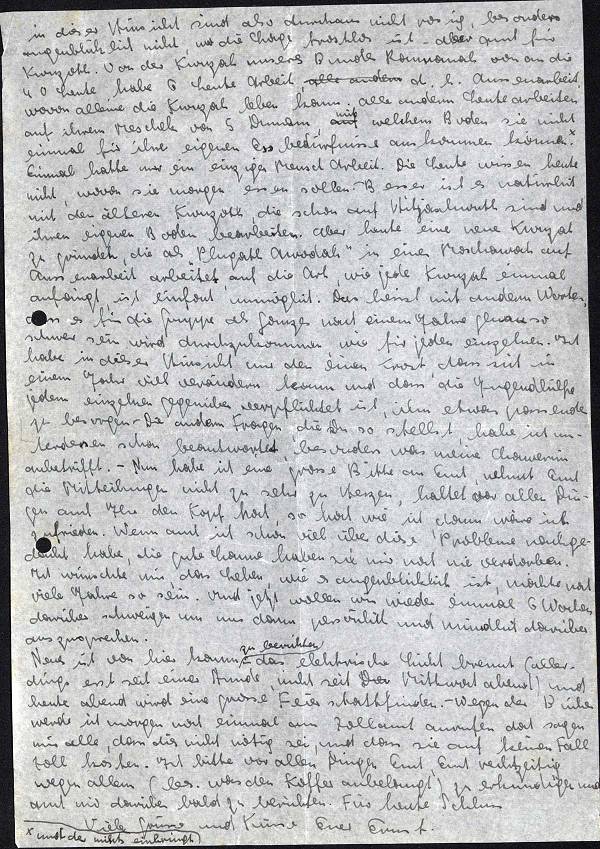 in dieser Hinsicht sind also durchaus nicht rosig, besonders
augenblicklich nicht, wo die Lage trostlos ist - aber auch für
Kwuzoth. Von der Kwuzah unseres Bundes von an die
40 Leute habe 6 Leute Arbeit, alle andern d. h. Aussenarbeit,
wovon alleine die Kwuzah leben kann. Alle andern Leute arbeiten
auf ihrem Meschek von 5 Dunam, auf mit welchem Boden sie nicht
einmal für ihre eigenen Essbedürfnisse auskommen können. x
Einmal hatte nur ein einziger Mensch Arbeit. Die Leute wissen heute
nicht, wovon sie morgen essen sollen. Besser ist es natürlich
mit den älteren Kwuzoth die schon auf Hitjaschwuth sind und
ihren eigenen Boden bearbeiten. Aber heute eine neue Kwuzah
zu gründen, die als "Plugath Awodah" in einer Moschawah auf
Aussenarbeit arbeitet auf die Art, wie jede Kwuzah einmal
anfängt, ist einfach unmöglich. Das heisst mit andern Worten,
dass es für die Gruppe als Ganzes nach einem Jahre genau so
schwer sein wird durchzukommen wie für jeden einzelnen. Ich
habe in dieser Hinsicht nur den einen Trost, dass sich in
einem Jahr viel verändern kann und dass die Jugendhilfe
jedem einzelnen gegenüber verpflichtet ist, ihm etwas passendes
zu besorgen. - Die andern Fragen die Du so stellst, habe ich un-
terdessen schon beantwortet, besonders was meine Chawerim
anbetrifft. - Nun habe ich eine grosse Bitte an Euch, nehmt Euch
die Mitteilungen nicht zu sehr zu Herzen, haltet vor allen Din-
gen auch Ihr den Kopf hoch, so hoch wie ich dann wäre ich
zufrieden. Wenn auch ich schon viel über diese Probleme nachge-
dacht habe, die gute Laune haben sie mir noch nie verdorben.
Ich wünschte mir, das Leben, wie es augenblicklich ist, möchte noch
viele Jahre so sein. Und jetzt wollen wir wieder einmal 6 Wochen
darüber schweigen um uns dann persönlich und mündlich darüber
auszusprechen.
Neues ist von hier kaum zu berichten, das elektrische Licht brennt (aller-
dings erst seit einer Stunde, nicht seit Mittwoch abend) und
heute abend wird eine grosse Feier stattfinden. - Wegen der Bücher
werde ich morgen noch einmal am Zollamt anrufen dort sagen
mir alle, dass dies nicht nötig sei, und dass sie auf keinen Fall
Zoll kosten. Ich bitte vor allen Dingen Euch Euch rechtzeitig
wegen allem (bes. was den Koffer anbelangt) zu erkundigen und
auch mir darüber bald zu berichten. Für heute Schluss
Viele Grüsse und Küsse Euer Ernst.
x und der nichts einbringt)